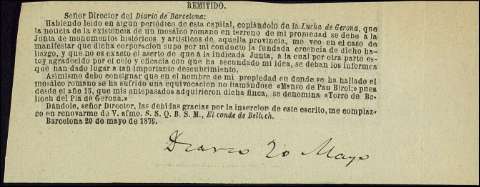 REMITIDO.
Señor Director del Diario de Barcelona:
Habiendo leido en algun periódico de esta capital, copiándolo de la Lucha de Gerona, que
la noticia de la existencia de un mosáico romano en terreno de mi propiedad se debe á la
Junta de monumentos históricos y artísticos de aquella provincia, me veo en el caso de
manifestar que dicha corporacion supo por mi conducto la fundada creencia de dicho ha-
lazgo, y que no es exacto el aserto de que á la indicada Junta, á la cual por otra parte es-
toy agradecido por el celo y eficacia con que ha secundado mi idea, se deban los informes
que han dado lugar á tan importante descubrimiento.
Asimismo debo consignar que en el nombre de mi propiedad en donde se ha hallado el
mosáico romano se ha sufrido una equivocacion no llamándose «Manso de Pau Birol» pues
desde el año 15, que mis antepasados adquirieron dicha finca, se denomina «Torre de Be-
lloch del Pla de Gerona.»
Dándole, señor Director, las debidas gracias por la insercion de este escrito, me complaz-
co en renovarme de V. afmo. S. S. Q. B. S. M., El conde de Belloch.
Barcelona 20 de mayo de 1876.
Diario 20 Mayo